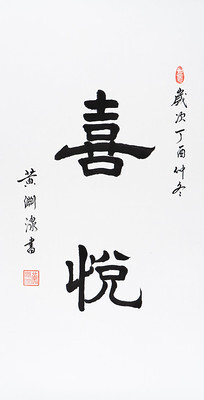 歲次丁酉仲冬
喜悅
黃淵濬書